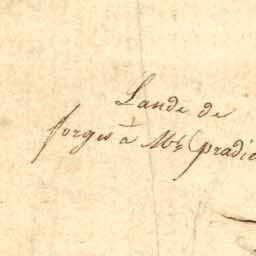 Lande de
forges à Mr pradie